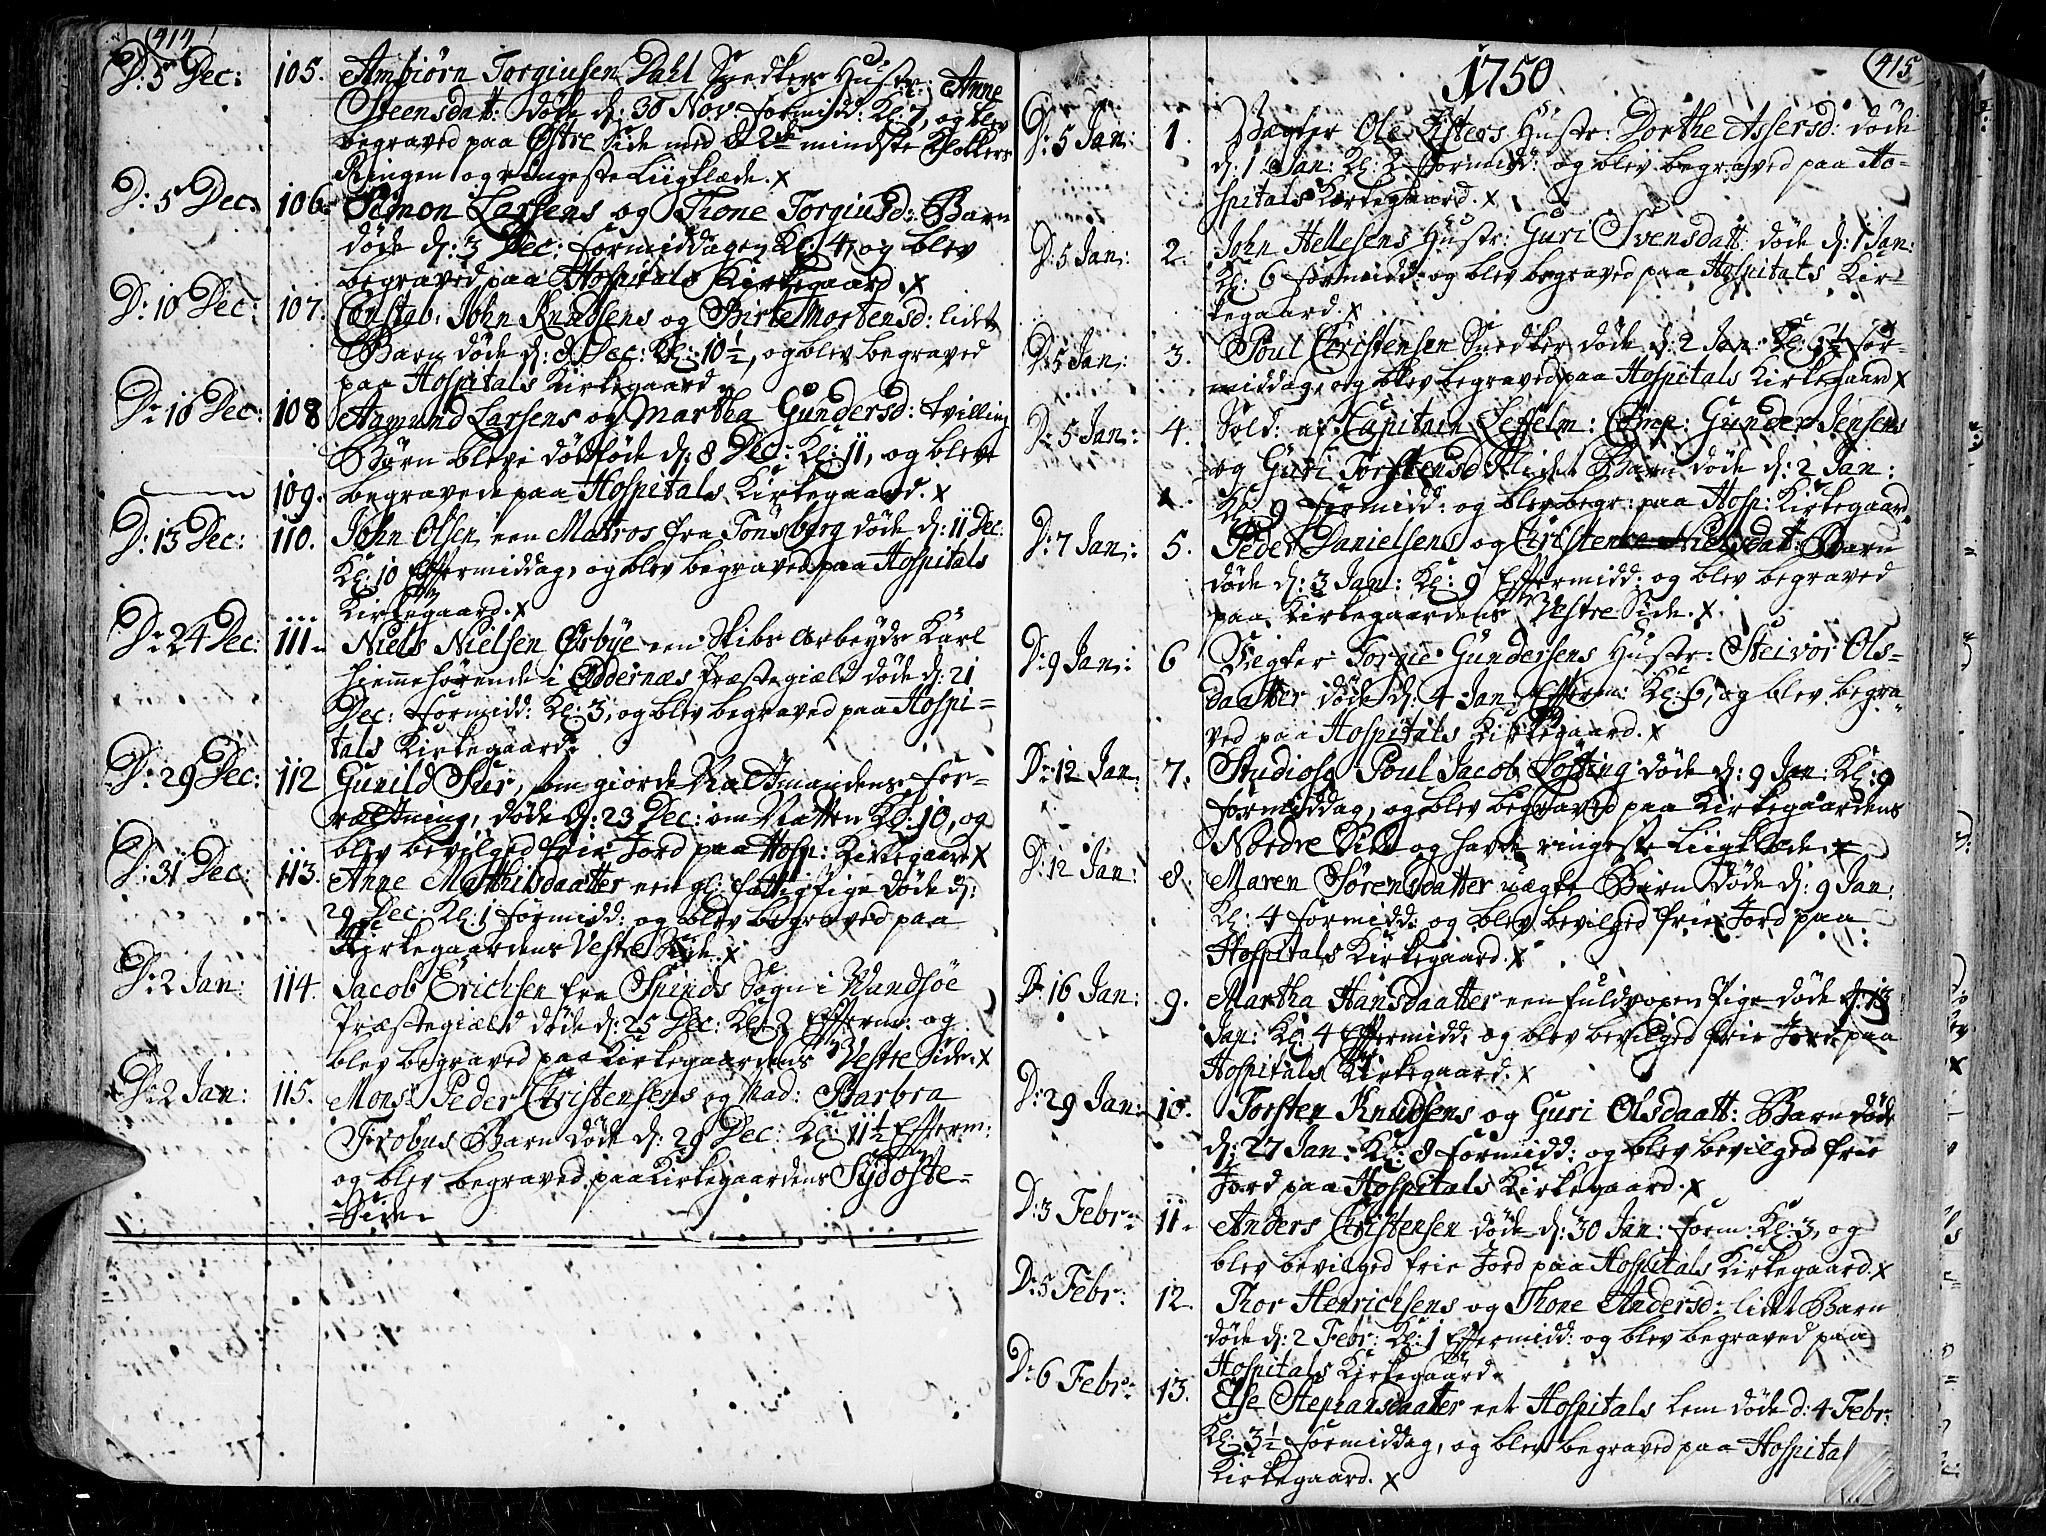 414
D: 5 Dec: 105. Ambiørn Torgiusen Dahl Snedkers Hustr: Anne
Steensdatt: døde d: 30 Nov: formidd: Kl: 7, og blev
begraved paa Østre Side med 2de mindste Klokkers
Ringen og ringeste Liigklæde. x
D: 5 Dec: 106. Simon Larsens og Thone Torgiusd: Barn
døde d: 3 Dec: formiddagen Kl: 4, og blev
begraved paa Hospitals Kirkegaard x
D: 10 Dec: 107. Constab: John Knudsens og Birte Mortensd: lidet
Barn døde d: 8 Dec: Kl: 10½, og blev begraved
paa Hospitals Kirkegaard x
D: 10 Dec: 108 Aamund Larsens og Martha Gundersd: tvilling
Børn bleve dødføde d: 8 Dec: Kl: 11, og bleve
109. begravede paa Hospitals Kirkegaard. x
D: 13 Dec: 110. John Olsen een Matros fra Tønsberg døde d: 11 Dec:
Kl: 10 Eftermiddag, og blev begraved paa Hospitals
Kirkegaard. x
D: 24 Dec: 111. Niels Nielsen Ørbye een Skibs Arbeyds Karl
hiemmehørende i Oddernæs Præstegield døde d: 21
Dec: formidd: Kl: 3, og blev begraved paa Hospi-
tals Kirkegaard.
D: 29 Dec: 112 Gunild Siur, som giorde Natmandens for-
rætning, døde d: 23 Dec: om Natten Kl: 10, og
blev bevilged frie Jord paa Hosp: Kirkegaard x
D: 31 Dec: 113. Anne Mathisdaatter een gl: fattig Pige døde d:
29 Dec: Kl: 1 formidd: og blev begraved paa
Kirkegaardens Vestre Side. x
D: 2 Jan: 114. Jacob Erichsen fra Spinds Sogn i Vandsøe
Præstegield døde d: 25 Dec: Kl: 2 Efterm: og
blev begraved paa Kirkegaardens Vestre Side. x
D: 2 Jan: 115. Monsr Peder Christensens og Mad: Barbra
Frobus Barn døde d: 29 Dec: Kl: 11½ Efterm:
og blev begraved paa Kirkegaardens Sydoste-
Side.
415
1750
D: 5 Jan: 1. Vægter Ole Listers Hustr: Dorthe Assersd: døde
d: 1 Jan: Kl: 2 formidd: og blev begraved paa Ho-
spitals Kirkegaard. x
D: 5 Jan: 2. John Hellesens Hustr: Guri Svensdatt: døde d: 1 Jan:
Kl: 6 formidd: og blev begraved paa Hospitals Kir-
kegaard. x
D: 5 Jan: 3. Poul Christensen Snedker døde d: 2 Jan: Kl: 6½ for-
middag, og blev begraved paa Hospitals Kirkegaard x
D: 5 Jan: 4. Sold: af Capitain Comp: Gunder Jensens
og Guri Torstensd: lidet Barn døde d: 2 Jan:
Kl: 9 formidd: og blev begr: paa Hosp: Kirkegaard
D: 7 Jan: 5. Peder Danielsens og Christence Nielsdat: Barn
døde d: 3 Jan: Kl: 9 Eftermidd: og blev begraved
paa Kirkegaardens Vestre Side. x
D: 9 Jan: 6 Vegter Torgie Gundersens Hustr: Steivor Ols-
daatter døde d: 4 Jan: Efterm: Kl: 6, og blev begra-
ved paa Hospitals Kirkegaard. x
D: 12 Jan: 7. Studioso Poul Jacob Lösting døde d: 9 Jan: Kl: 9
formiddag, og blev begraved paa Kirkegaardens
Nordre Side og havde ringeste Liigklæde. x
D: 12 Jan: 8. Maren Sørensdatter uægte Barn døde d: 9 Jan:
Kl: 4 formidd: og blev bevilged frie Jord paa
Hospitals Kirkegaard. x
D: 16 Jan: 9. Martha Hansdaatter een fuldvoxen Pige døde d: 13
Jan: Kl: 4 Eftermidd: og blev bevilged frie Jord paa
Hospitals Kirkegaard. x
D: 29 Jan: 10. Torsten Knudsens og Guri Olsdaatt: Barn døde
d: 27 Jan: Kl: 8 formidd: og blev bevilged frie
Jord paa Hospitals Kirkegaard. x
D: 3 Febr: 11. Anders Christensen døde d: 30 Jan: form: Kl: 3, og
blev bevilged frie Jord paa Hospitals Kirkegaard. x
D: 5 Febr: 12. Thor Henrichsens og Thone Andersd: lidet Barn
døde d: 2 Febr: Kl: 1 Eftermidd: og blev begraved paa
Hospitals Kirkegaard.
D: 6 Febr: 13. Else Stephansdaatter eet Hospitals Lem døde d: 4 Febr:
Kl: 3½ formiddag, og blev begraved paa Hospital
Kirkegaard. x